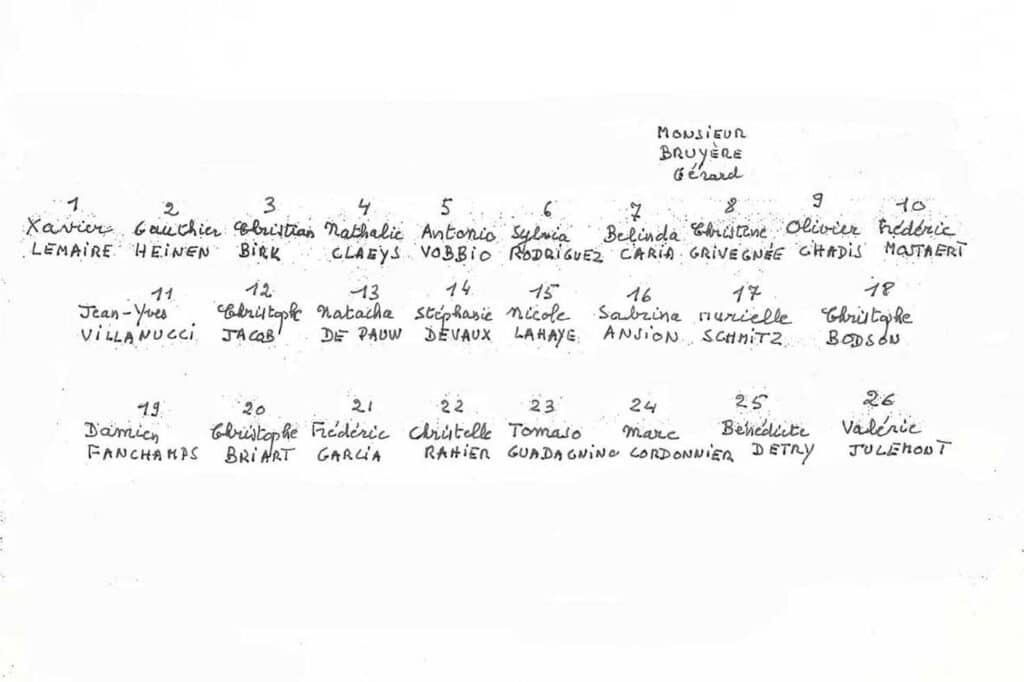 MONSIEUR
BRUYÈRE
Gérard
1 2 3 4 5 6 7 8 9 10
Xavier Gauthier Christian Nathalie Antonio Sylvia Belinda Christine Olivier Frédéric
LEMAIRE HEINEN BIRK CLAEYS VOBBIO RODRIGUEZ CARIA GRIVEGNÉE CHADIS MOSTAERT
11 12 13 14 15 16 17 18
Jean-Yves Christophe Natacha Stéphanie Nicole Sabrina Murielle Christophe
VILLANUCCI JACOB DE PAUW DEVAUX LAHAYE ANSION SCHMITZ BODSON
19 20 21 22 23 24 25 26
Damien Christophe Frédéric Christelle Tomaso Marc Bénédicte Valérie
FANCHAMPS BRIART GARCIA RAHIER GUADAGNINO CORDONNIER DETRY JULEMONT